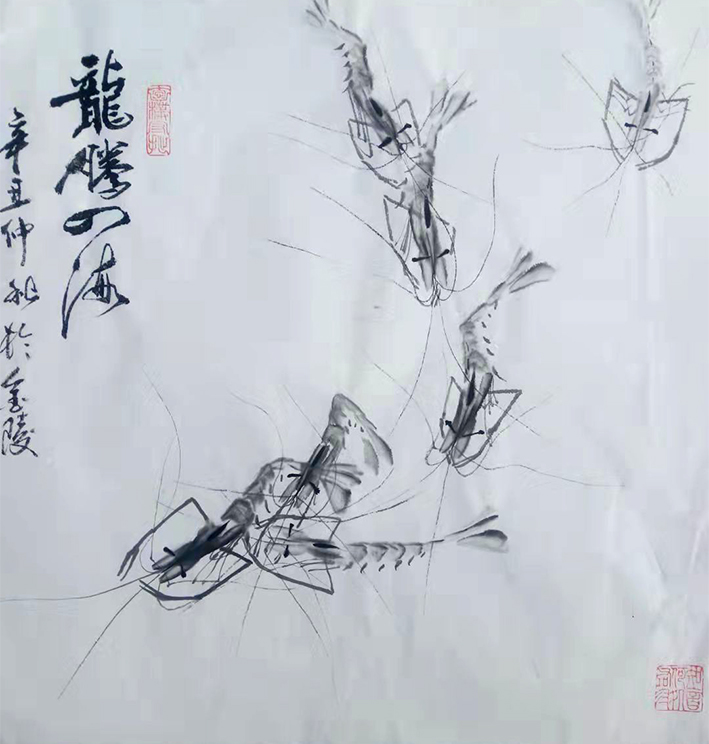 龍騰四海
辛丑仲秋於金陵